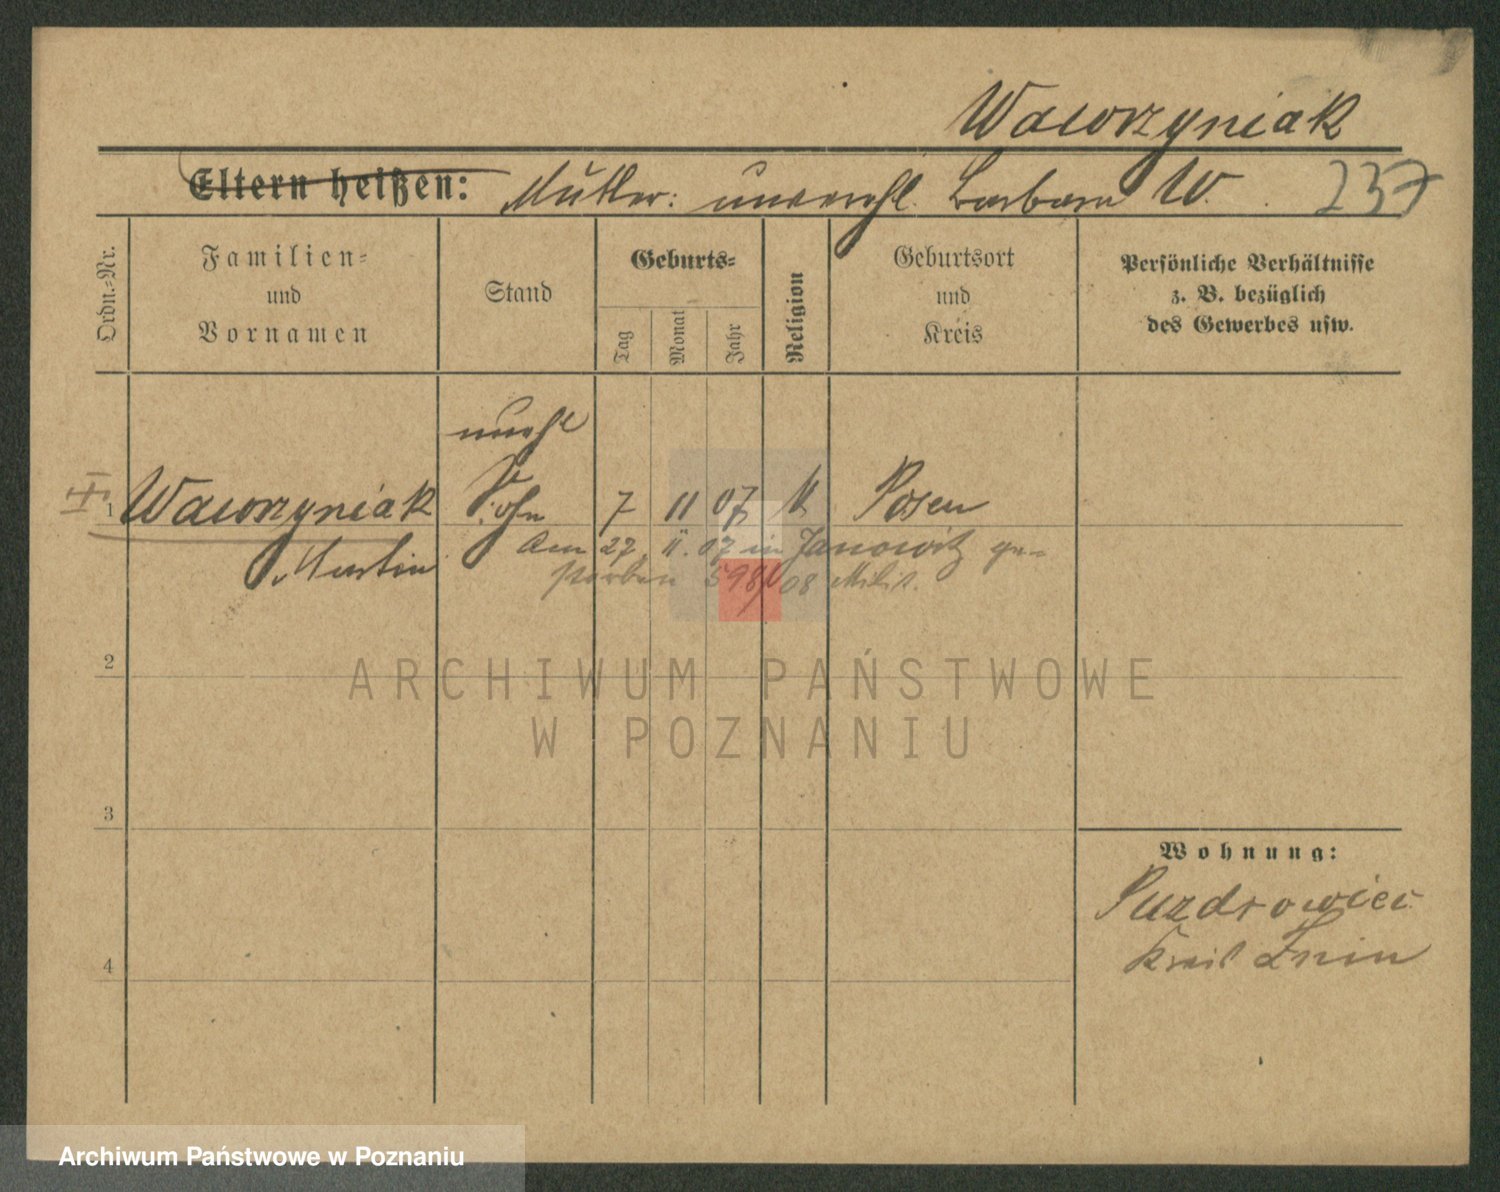 Wawrzyniak
Eltern heißen: Mutter: unverehl. Barbara W. 237
Ordn.-Nr.
Familien-
und
Vornamen
Stand
Geburts-
Tag
Monat
Jahr
Religion
Geburtsort
und
Kreis
Persönliche Verhältnisse
z. B. bezüglich
des Gewerbes usw.
unehl
1 Wawrzyniak Sohn 7 11 07 Posen
Martin
Am 27. 11. 07 in Janowitz ge-
storben 598/08 Milit.
2
3
4
Wohnung:
Puzdrowiec
Kreis Znin
ARCHIWUM PAŃSTWOWE
W POZNANIU
Archiwum Państwowe w Poznaniu